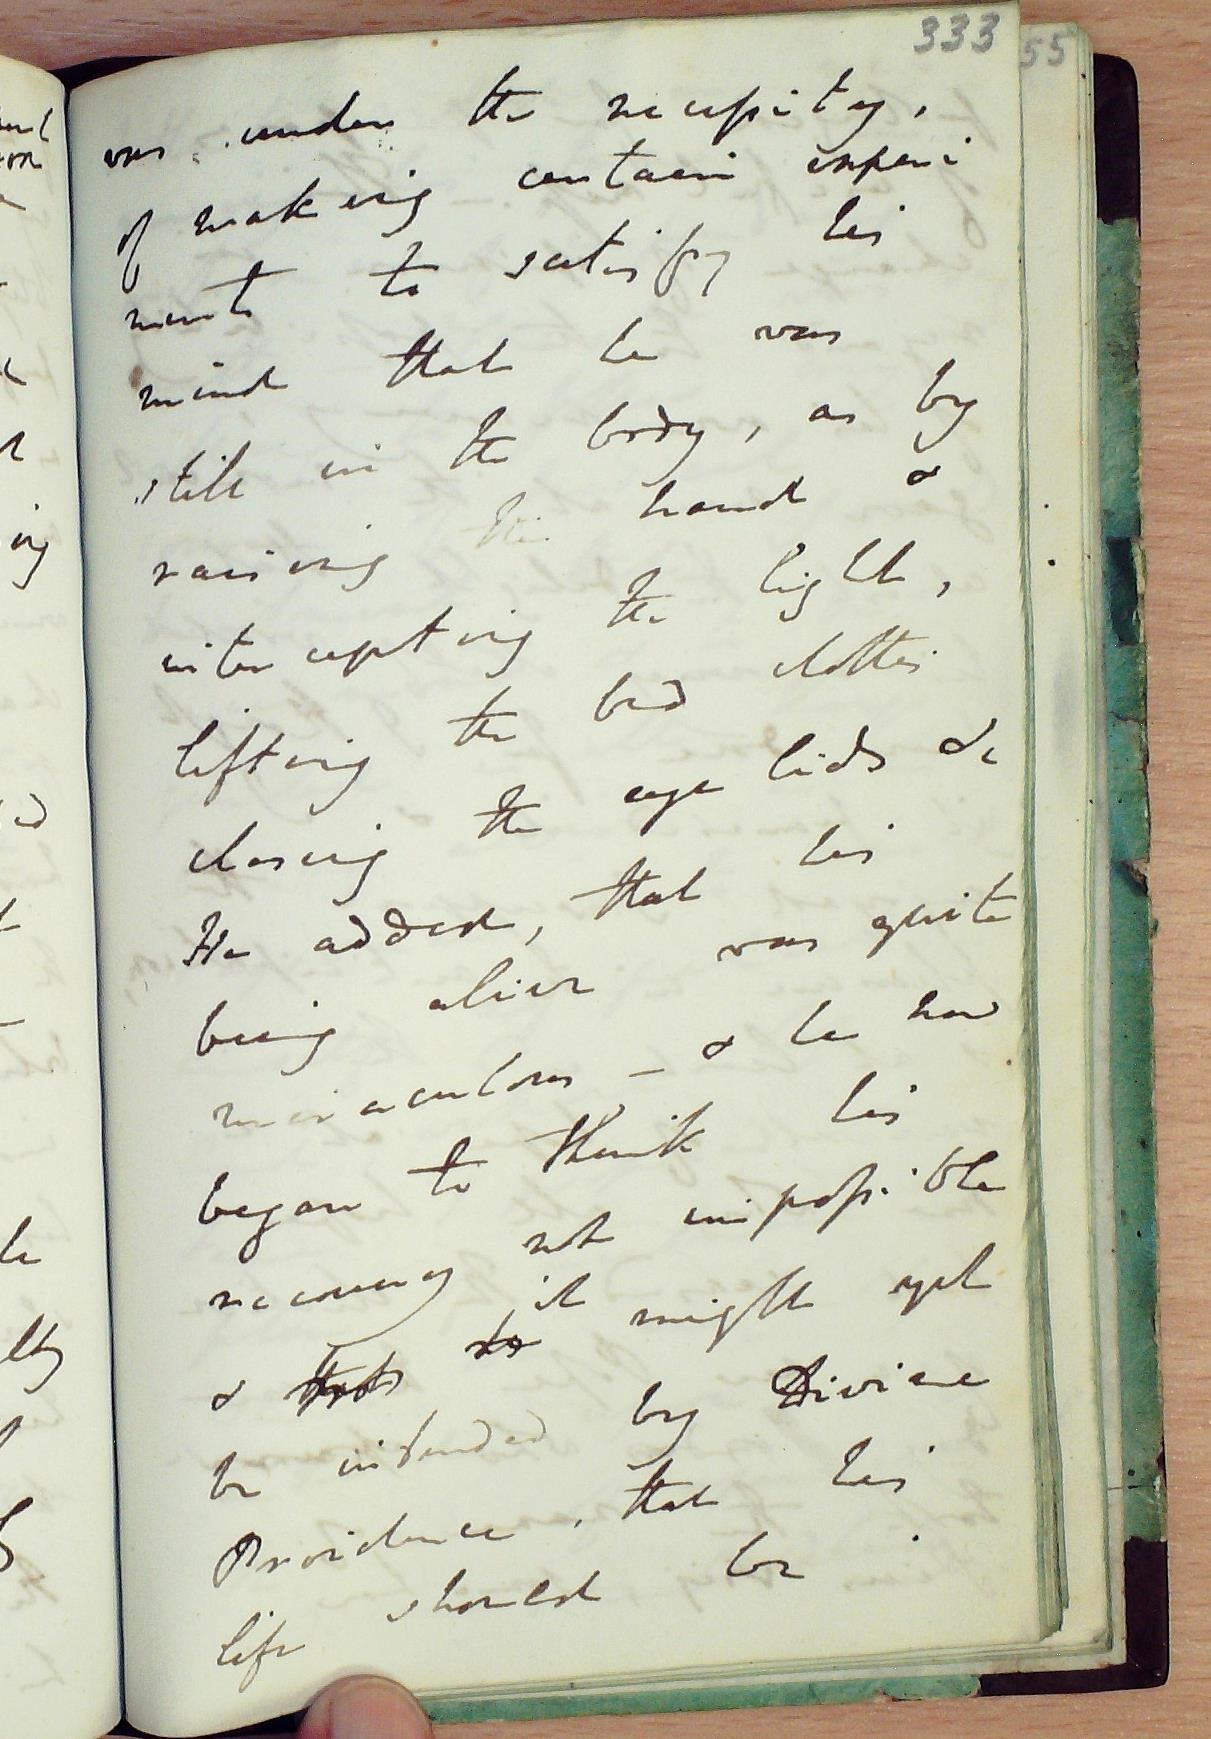 333
55
was under the necessity,
of making certain experi
ments to satisfy his
mind that he was
still in the body, as by
raising the hand &
intercepting the light,
lifting the bed clothes
closing the eye lids &c
He added, that his
being alive was quite
miraculous – & he now
began to think his
recovery not impossible
& it might yet
be intended by Divine
Providence, that his
life should be